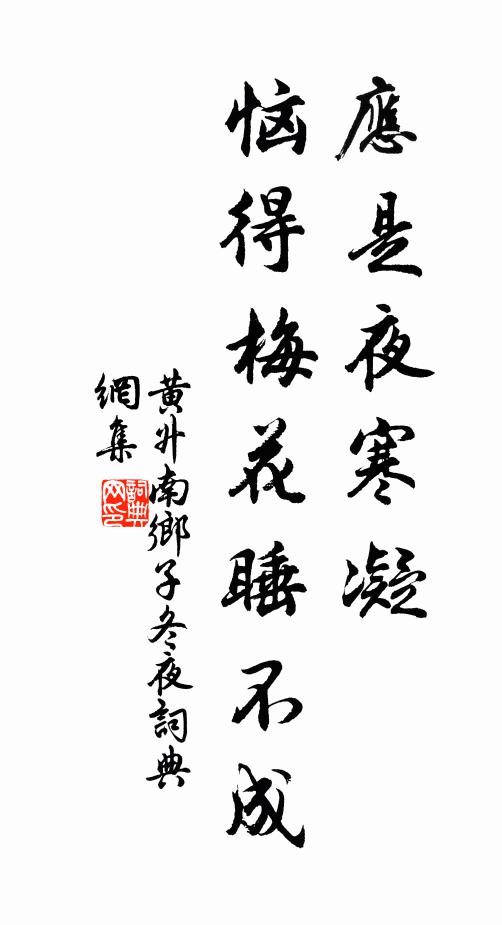 應是夜寒凝
恼得梅花睡不成
黄升南鄉子冬夜詞典
網集
詞典
网印